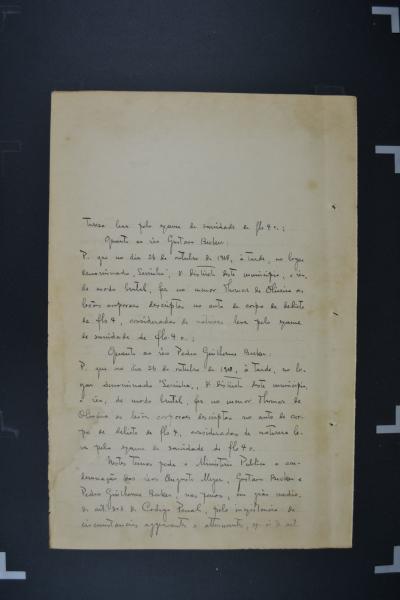 tureza leve pelo exame de sanidade de fls 40.;
Quanto ao réo Gustavo Becker:
P. que no dia 26 de outubro de 1908, à tarde, no logar
denominado "Serrinha", 8º Districto deste municipio, o réo,
de modo brutal, fez no menor Thomaz de Oliveira as
lesões corporaes descriptas no auto de corpo de delicto
de fls 4, consideradas de natureza leve pelo exame
de sanidade de fls 40.;
Quanto ao réo Pedro Guilherme Becker:
P. que no dia 26 de outubro de 1908, à tarde, no lo-
gar denominado "Serrinha", 8º Districto deste municipio,
o réo, de modo brutal, fez no menor Thomaz de
Oliveira as lesões corporaes descriptas no auto de cor-
po de delicto de fls 4, consideradas de natureza le-
ve pelo exame de sanidade de fls 40.
Nestes termos pede o Ministerio Publico a con-
demnação dos réos Augusto Meyer, Gustavo Becker e
Pedro Guilherme Becker, nas penas, em gráo medio,
do art. 303 do Codigo Penal, pela inexistencia de
circumstancias aggravantes e attenuantes, do art.